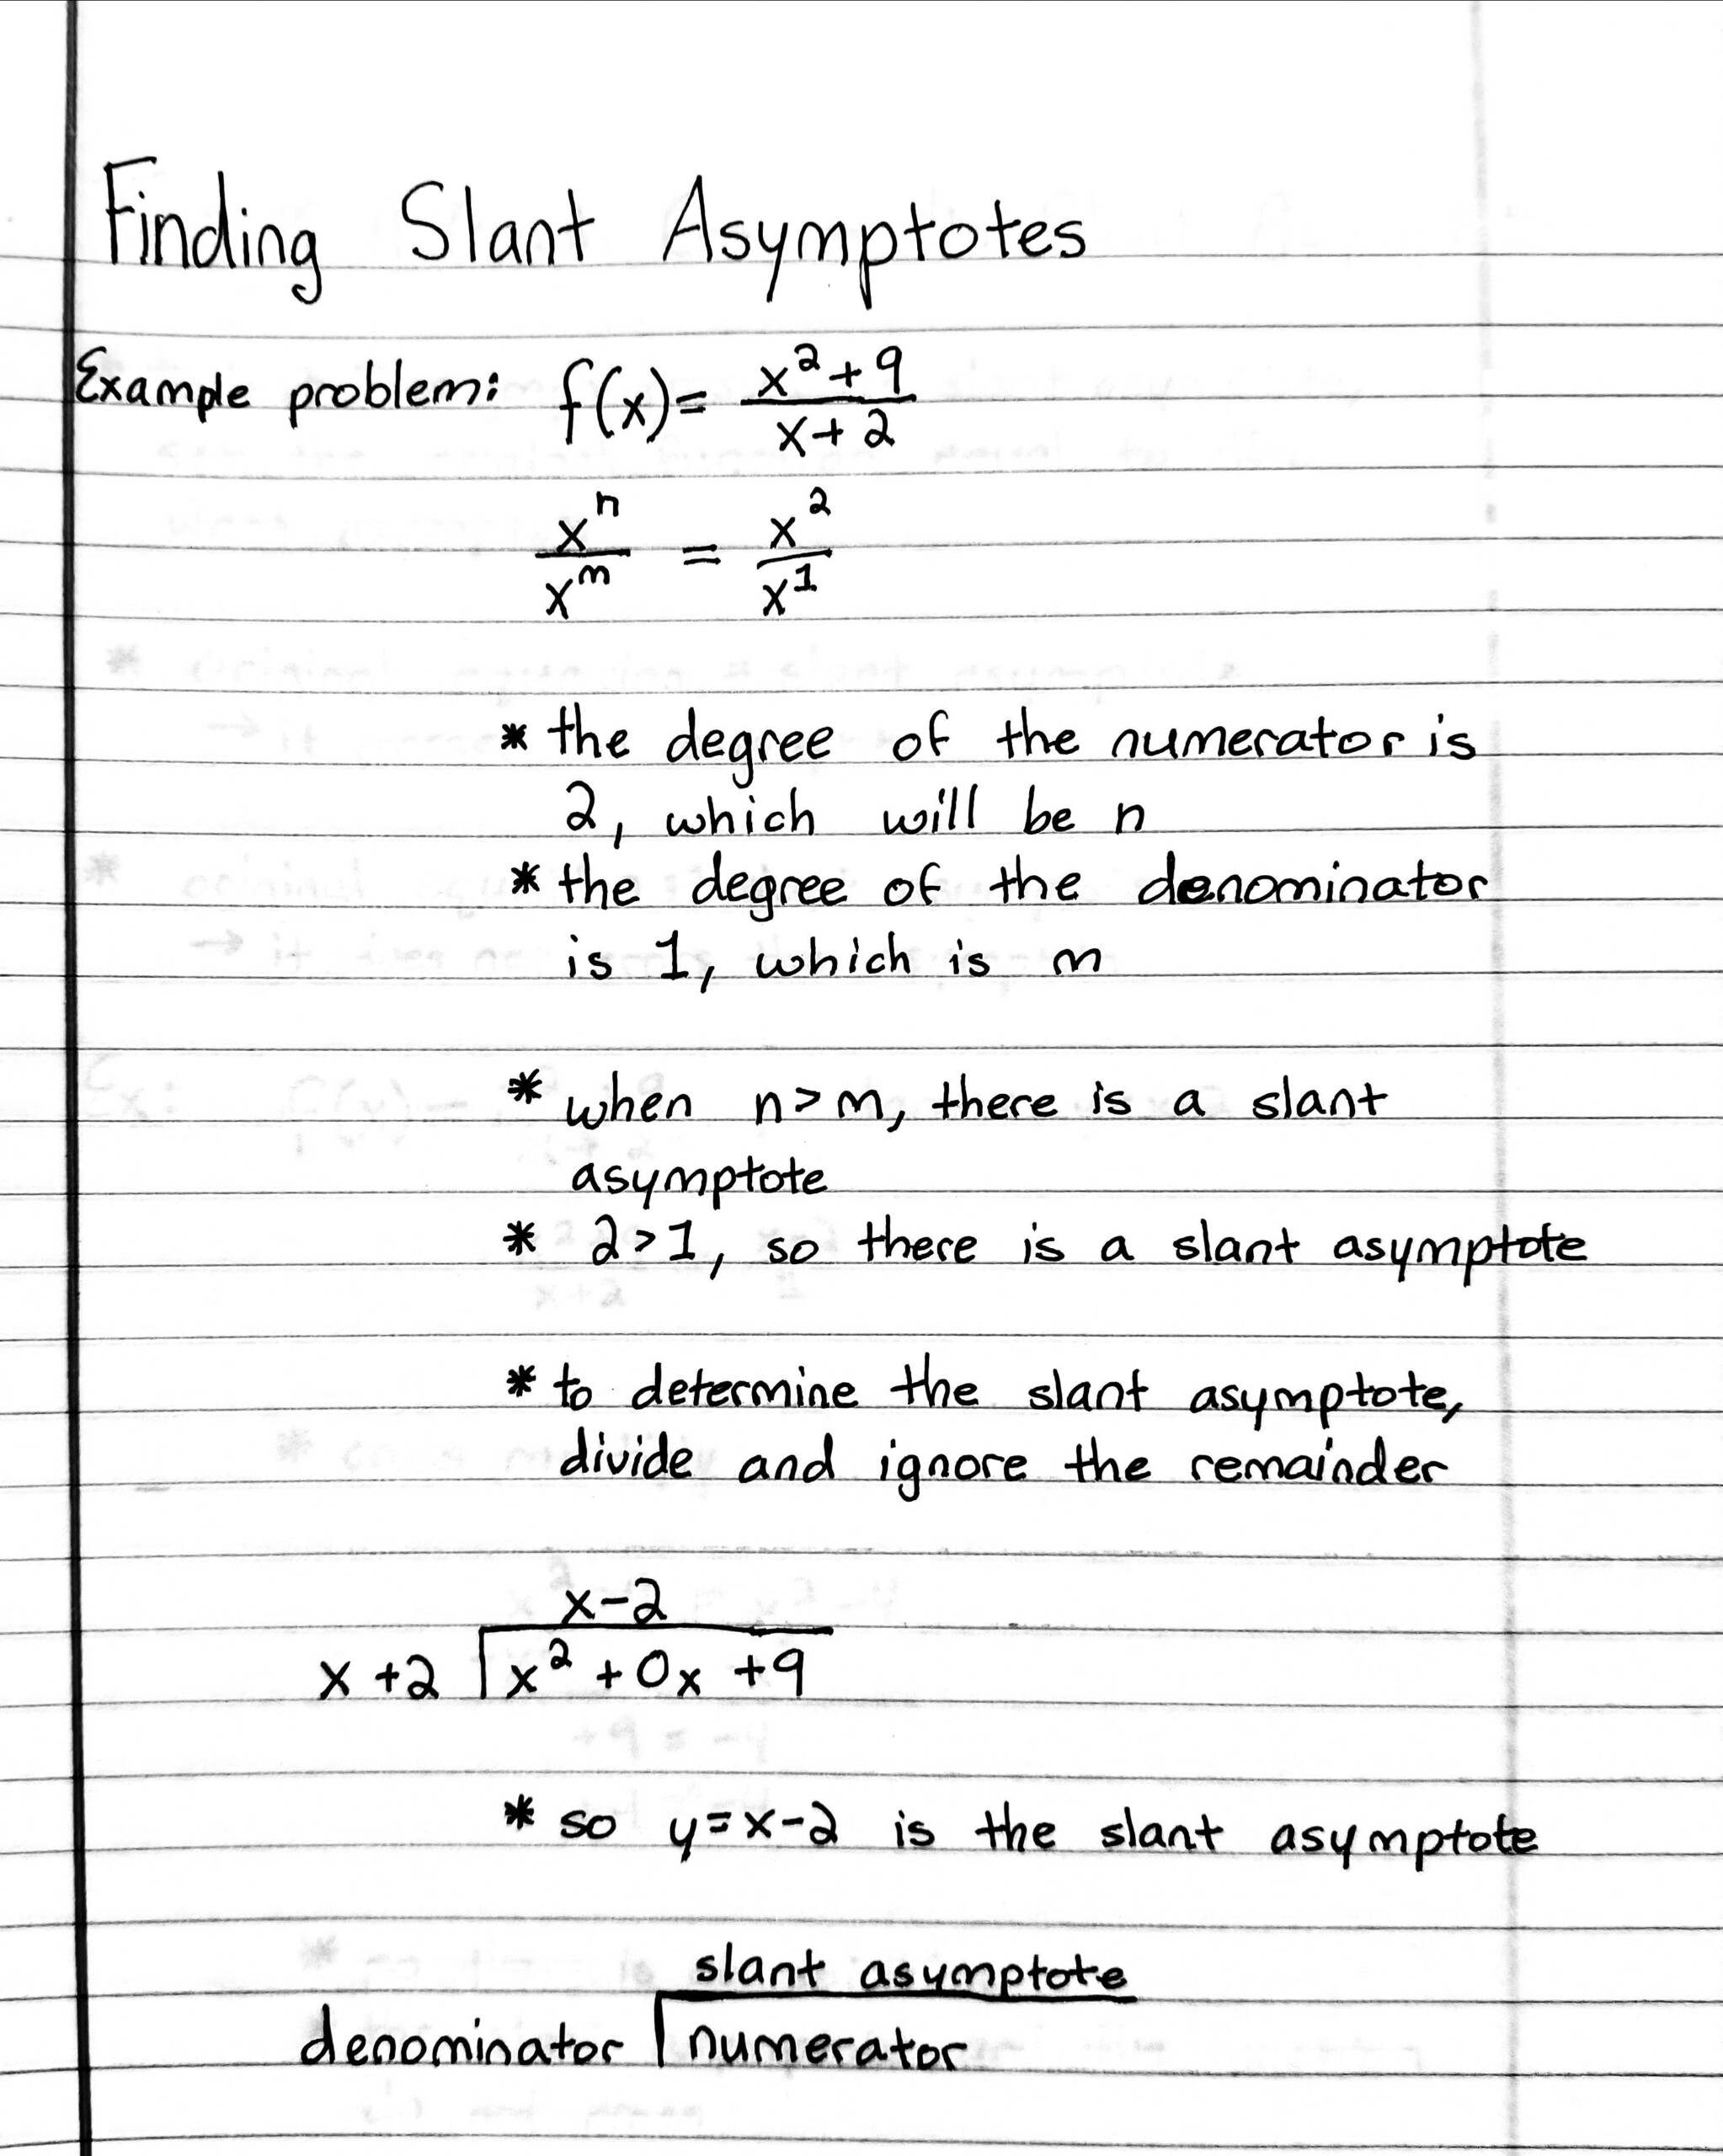 Finding Slant Asymptotes
Example problem: f(x) = x²+9 / x+2
xⁿ / xᵐ = x² / x¹
* the degree of the numerator is
2, which will be n
* the degree of the denominator
is 1, which is m
* when n>m, there is a slant
asymptote
* 2>1, so there is a slant asymptote
* to determine the slant asymptote,
divide and ignore the remainder
x-2
x +2 x² +0x +9
* so y=x-2 is the slant asymptote
slant asymptote
denominator numerator